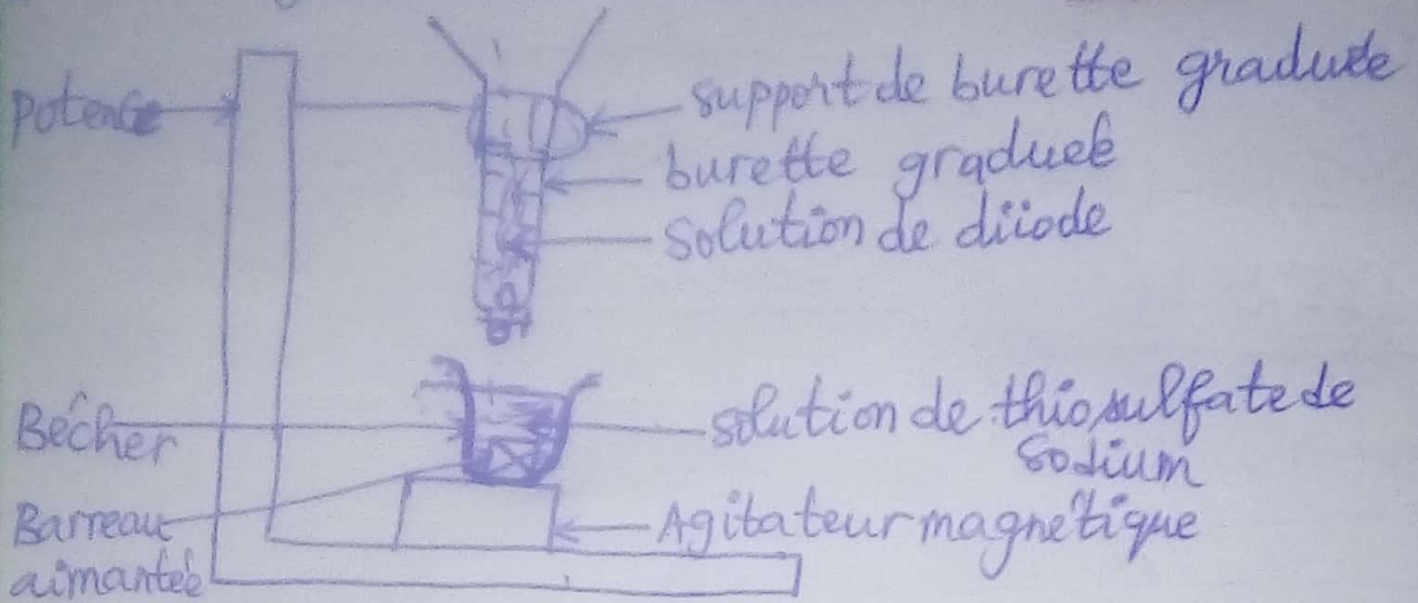 Potence
support de burette graduée
burette graduée
Solution de diiode
Bécher
solution de thiosulfate de
Sodium
Barreau
aimantée
Agitateur magnétique